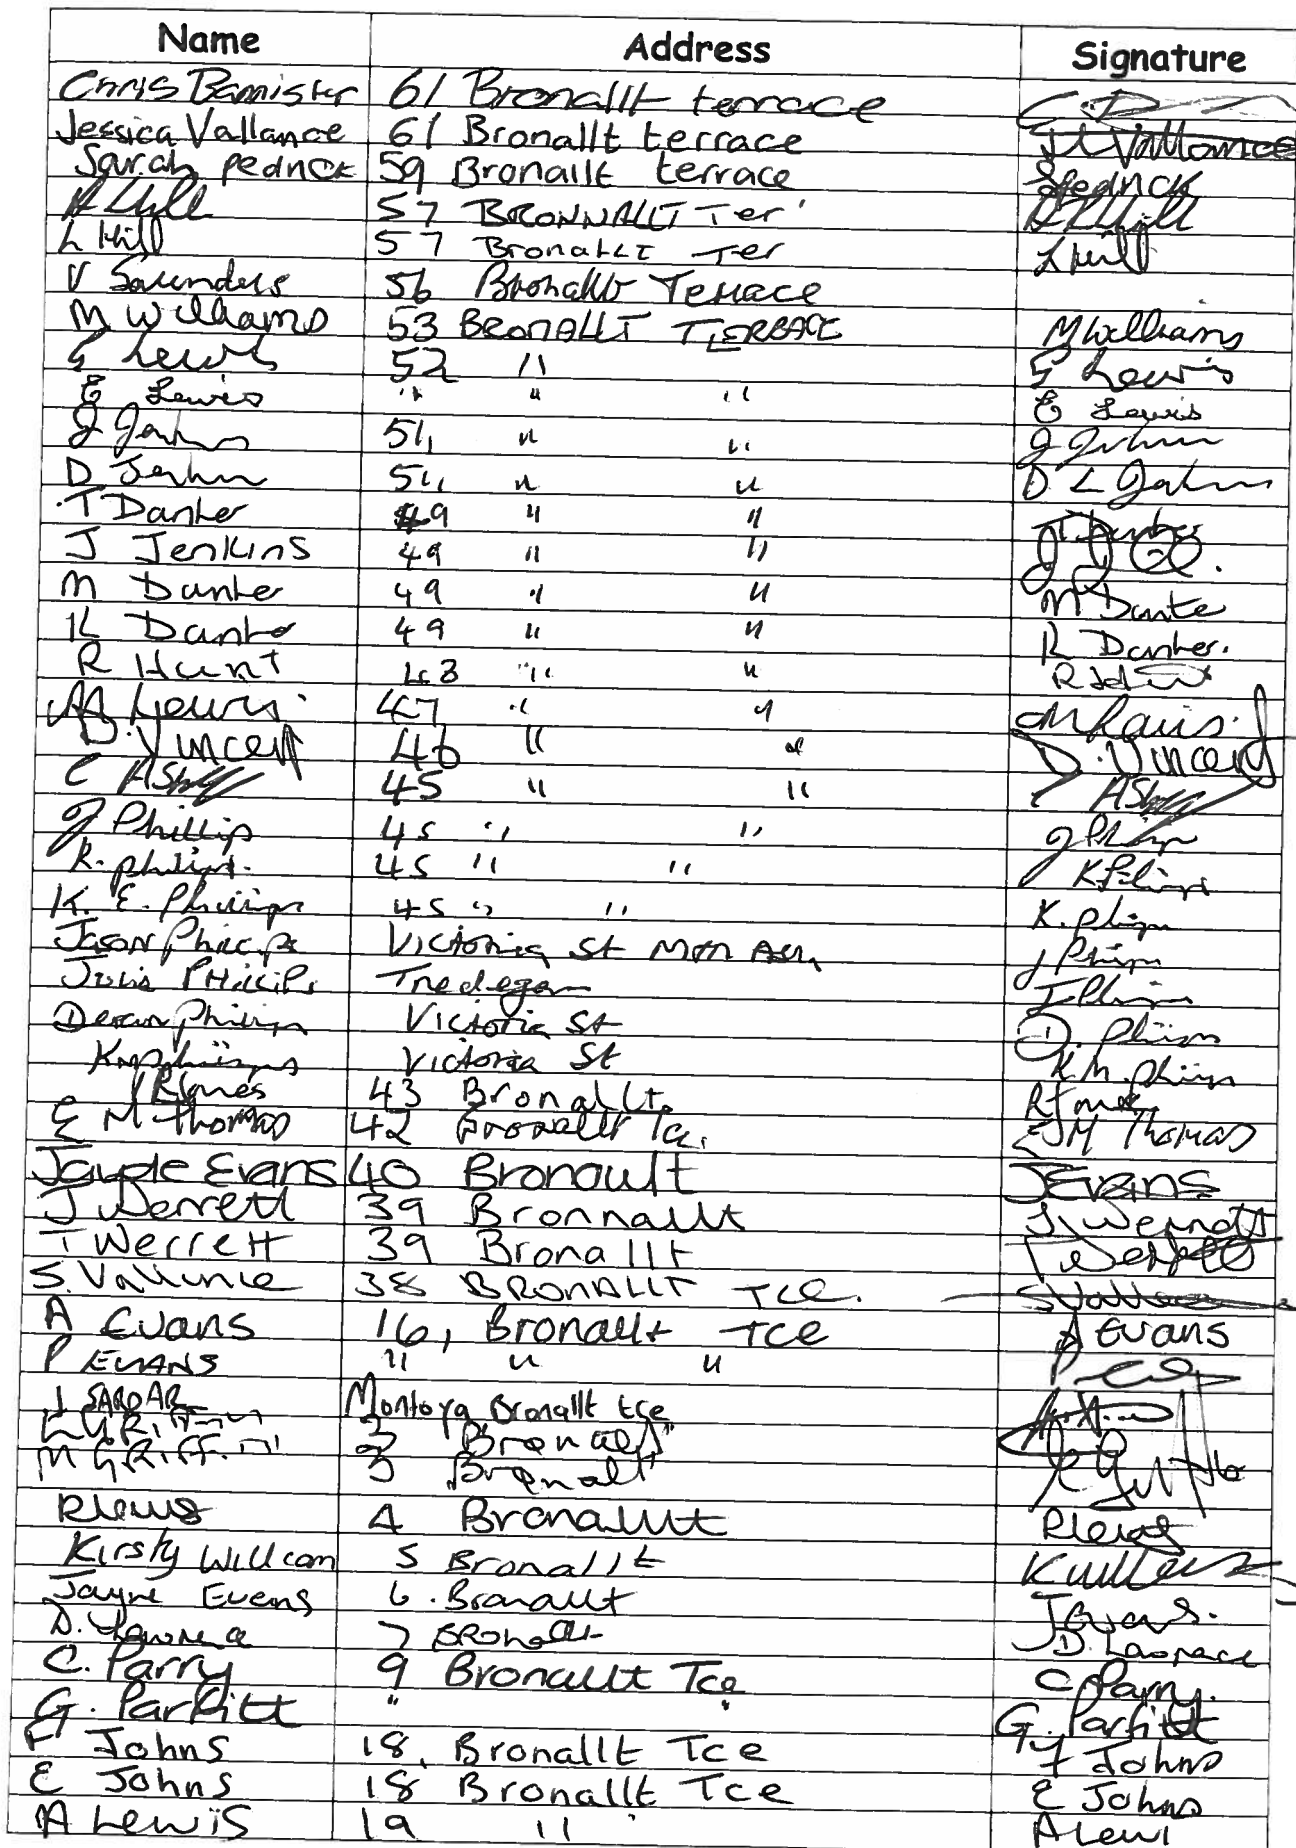 Name Address Signature
Chris Bannister 61 Bronallt terrace
Jessica Vallance 61 Bronallt terrace Vallance
Sarah Pednck 59 Bronallt terrace Spednck
57 BRONNALLT Ter'
L Hill 57 Bronallt Ter L Hill
V Saunders 56 Bronallt Terrace
M Williams 53 BRONALLT TERRACE M Williams
G Lewis 52 " G Lewis
E Lewis " " " E Lewis
J 51, " " J
D 51, " " D L
T Danter 49 " " T Danter
J Jenkins 49 " "
M Danter 49 " " M Dante
K Danter 49 " " K Danter.
R Hunt 43 " " R
M Lewis. 47 " " M
D. Vincent 46 " " D. Vincent
C 45 " "
J Phillips 45 " " J
K. Philips. 45 " " K
K. E. Phillips 45 " " K.
Jason Phillips Victoria St Mtn Ash J
Julie Phillips Tredegar J
Phillips Victoria St D.
K M Phillips Victoria St K.M.
R Jones 43 Bronallt. R Jones
E M Thomas 42 Bronallt Tce. E J M Thomas
Evans 40 Bronault J Evans
J Werrett 39 Bronnallt J. Werrett
T Werrett 39 Bronallt T Werrett
S. Vallance 38 BRONALLT Tce. S Vallance
A Evans 16, Bronallt Tce A Evans
P EVANS " " "
SARDAR Montoya Bronallt tce
L GRIFFITHS 3 Bronallt
M GRIFFITHS 3 Bronallt
R Lewis 4 Bronallt R Lewis
Kirsty William 5 Bronallt K Williams
Jayne Evans 6. Bronallt J Evans.
D. Lawrence 7 Bronallt D. Lawrence
C. Parry 9 Bronallt Tce C Parry.
G. Parfitt " " G. Parfitt
F Johns 18, Bronallt Tce F Johns
E Johns 18 Bronallt Tce E Johns
A Lewis 19 " A Lewi